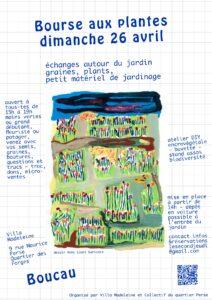 Bourse aux plantes
dimanche 26 avril
échanges autour du jardin
graines, plants,
petit matériel de jardinage
ouvert à
tous·tes de
15h à 19h
mains vertes
ou grand
débutant,
fleuriste ou
potager,
venez avec
vos semis,
graines,
boutures,
questions et
trucs - troc,
dons, micro-
ventes
atelier DIY
encrevégétale
- buvette -
stand assos
biodiversité
mise en place
à partir de
14h - dépôt
en voiture
possible à
l'entrée du
jardin
contact infos
&réservations
Villa
Madeleine
9 rue Maurice
Perse
Quartier des
Forges
Boucau
Organisé par Villa Madeleine et Collectif du quartier Perse